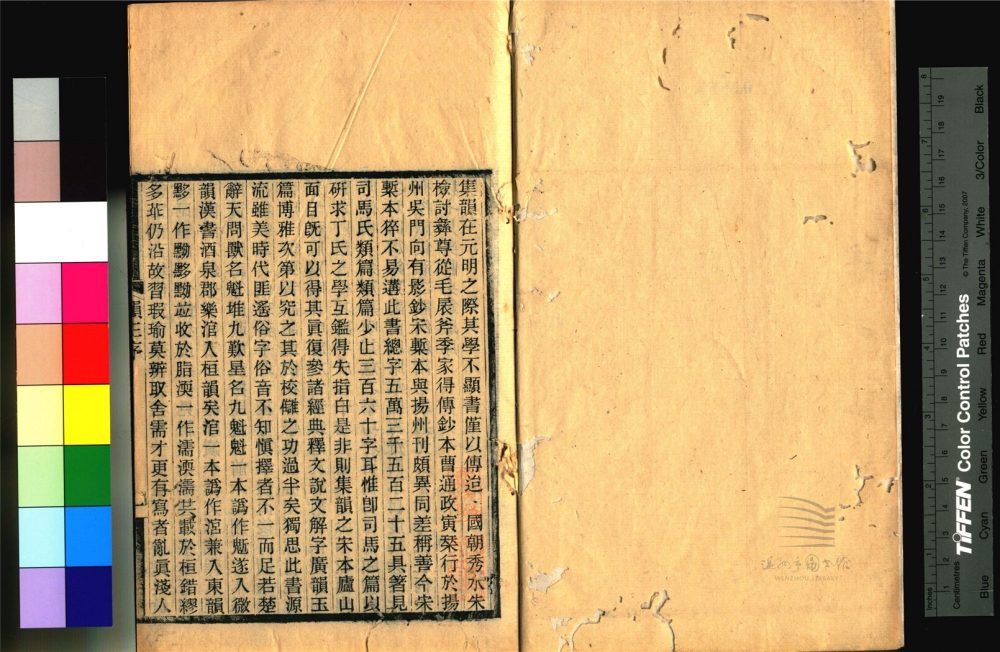 集韻在元明之際其學不顯書僅以傳迨 國朝秀水朱
檢討彝尊從毛扆斧季家得傳鈔本曹通政寅槧行於揚
州吳門向有影鈔宋槧本與揚州刊頗異同差稱善今宋
槧本猝不易遘此書總字五萬三千五百二十五具著見
司馬氏類篇類篇少止三百六十字耳惟卽司馬之篇以
硏求丁氏之學互鑑得失指白是非則集韻之宋本廬山
面目旣可以得其眞復參諸經典釋文說文解字廣韻玉
篇博雅次第以究之其於校讎之功過半矣獨思此書源
流雖美時代匪遙俗字俗音不知愼擇者不一而足若楚
辭天問獸名魁堆九歎星名九鬿鬿一本譌作魁遂入微
韻漢書酒泉郡樂涫入桓韻矣涫一本譌作涫兼入東韻
黟一作黝黟黝竝收於脂渜一作濡渜濡共載於桓錯繆
多茻仍沿故習瑕瑜莫辨取舍需才更有寫者亂眞淺人
韻正序
溫州市圖書館
WENZHOU LIBRARY
Inches
Centimetres
TIFFEN Color Control Patches
© The Tiffen Company, 2007
Blue
Cyan
Green
Yellow
Red
Magenta
White
3/Color
Black